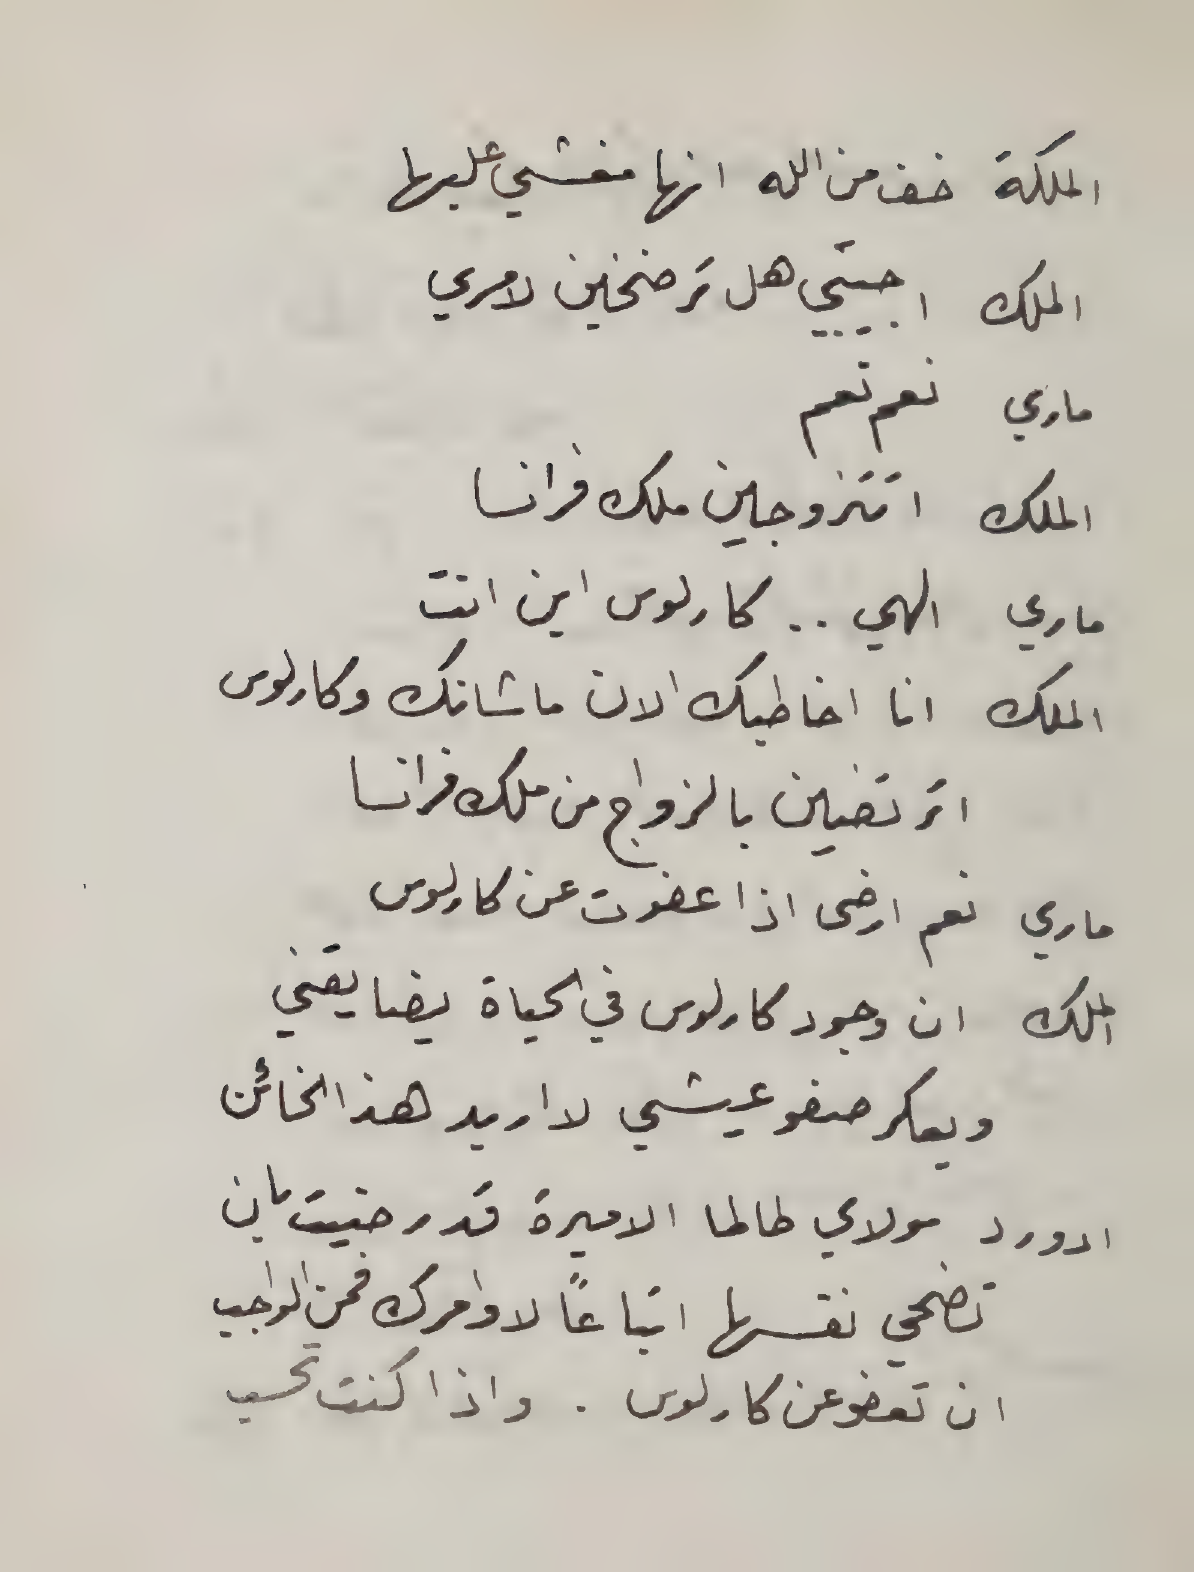 الملكة خف من الله انها مغشي عليها
الملك اجيبي هل ترضخين لامري
ماري نعم نعم
الملك اتتزوجين ملك فرانسا
ماري الهي .. كارلوس اين انت
الملك انا اخاطبك الان ما شانك وكارلوس
اترتضين بالزواج من ملك فرانسا
ماري نعم ارضى اذا عفوت عن كارلوس
الملك ان وجود كارلوس في الحياة يضايقني
ويعكر صفو عيشي لا اريد هذا الخائن
ادورد مولاي طالما الاميرة قد رضيت بان
تضحي نفسها اتباعًا لاوامرك فمن الواجب
ان تعفو عن كارلوس . واذا كنت تحسب